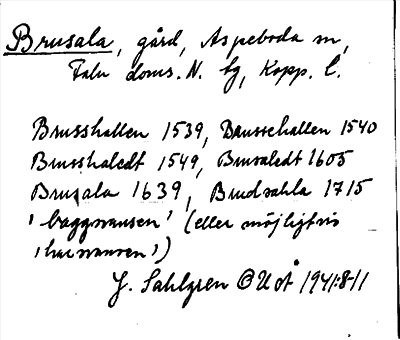 Brusala, gård, Aspeboda sn,
Falu doms. N. tg, Kopp. l.
Brusshallen 1539, Brussehallen 1540
Brusshaledt 1549, Brusaledt 1605
Brusala 1639, Brudsahla 1715
'baggsvansen' (eller möjligtvis
J. Sahlgren OUÅ 1941:8-11